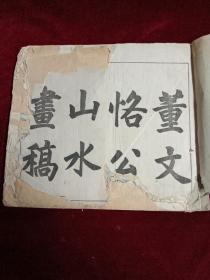 董文
恪公
山水
畫稿